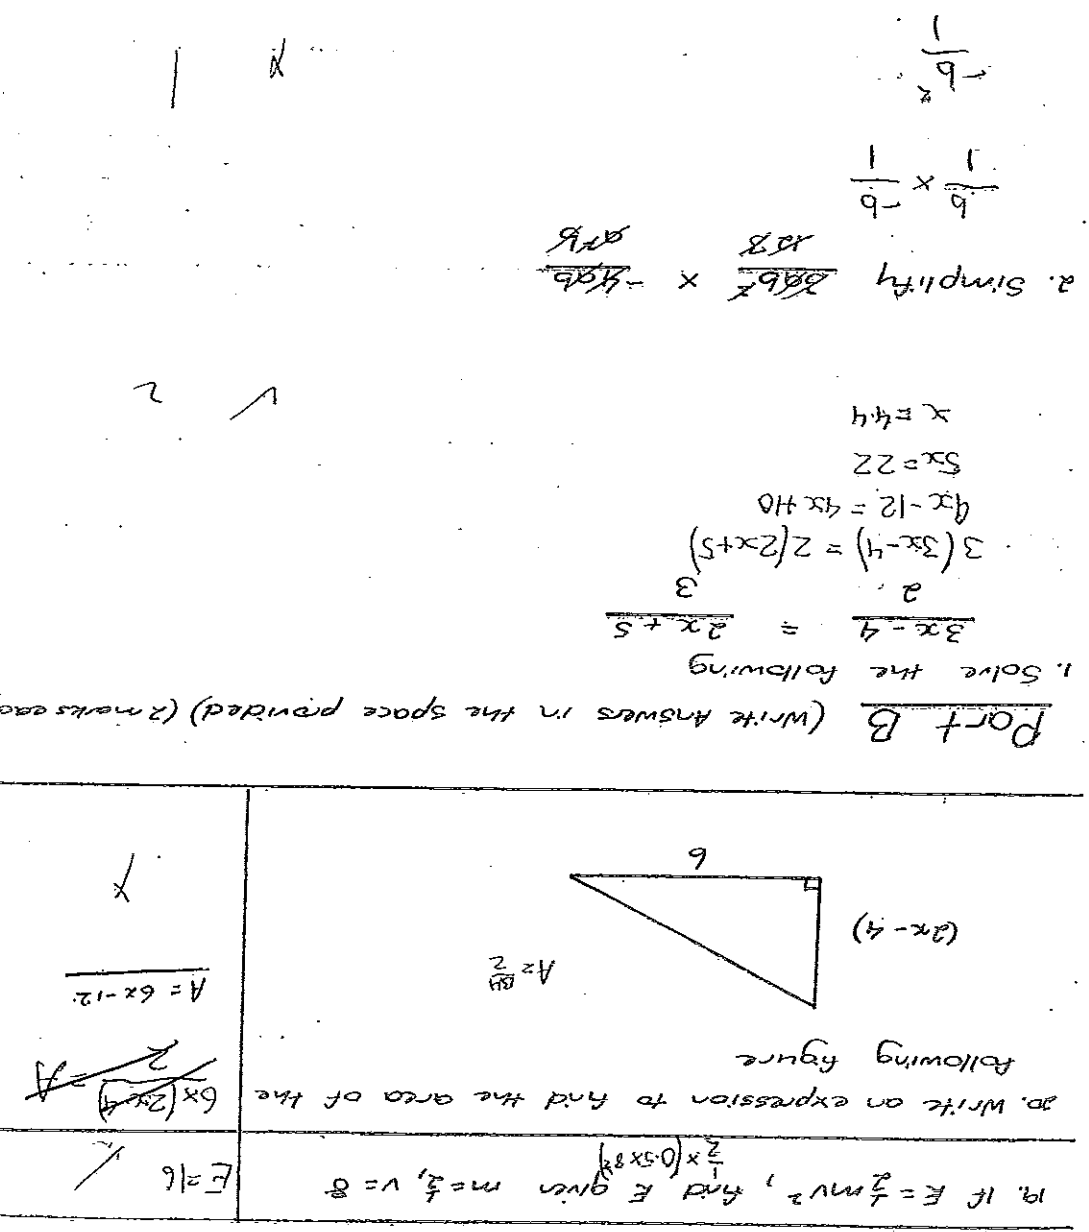 19. If E = ½mv², find E given m=½, v=8
½×(0.5×8²)
E=16
20. Write an expression to find the area of the
following figure
6×(2x-4)/2 = A
A = 6x-12
A = BH/2
(2x-4)
6
Part B (Write Answers in the space provided) (2 marks eac
1. Solve the following
3x-4/2 = 2x+5/3
3(3x-4) = 2(2x+5)
9x-12 = 4x+10
5x=22
x=4.4
2
2. Simplify 3ab²/12 × -4ab/a²b
b/1 × -b/1
-b²/1
1